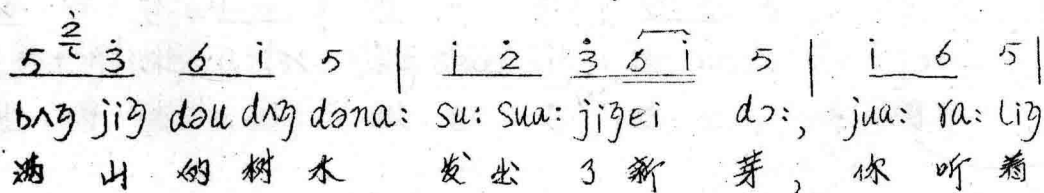 5 2̇ 3̇ 6 i 5 | i 2̇ 3̇ 6 i 5 | i 6 5 |
bʌŋ jiŋ dəu dʌŋ dəna: su: sua: jiŋei dɔ:, jua: ra: liŋ
满 山 的 树 木 发 出 了 新 芽, 你 听 着